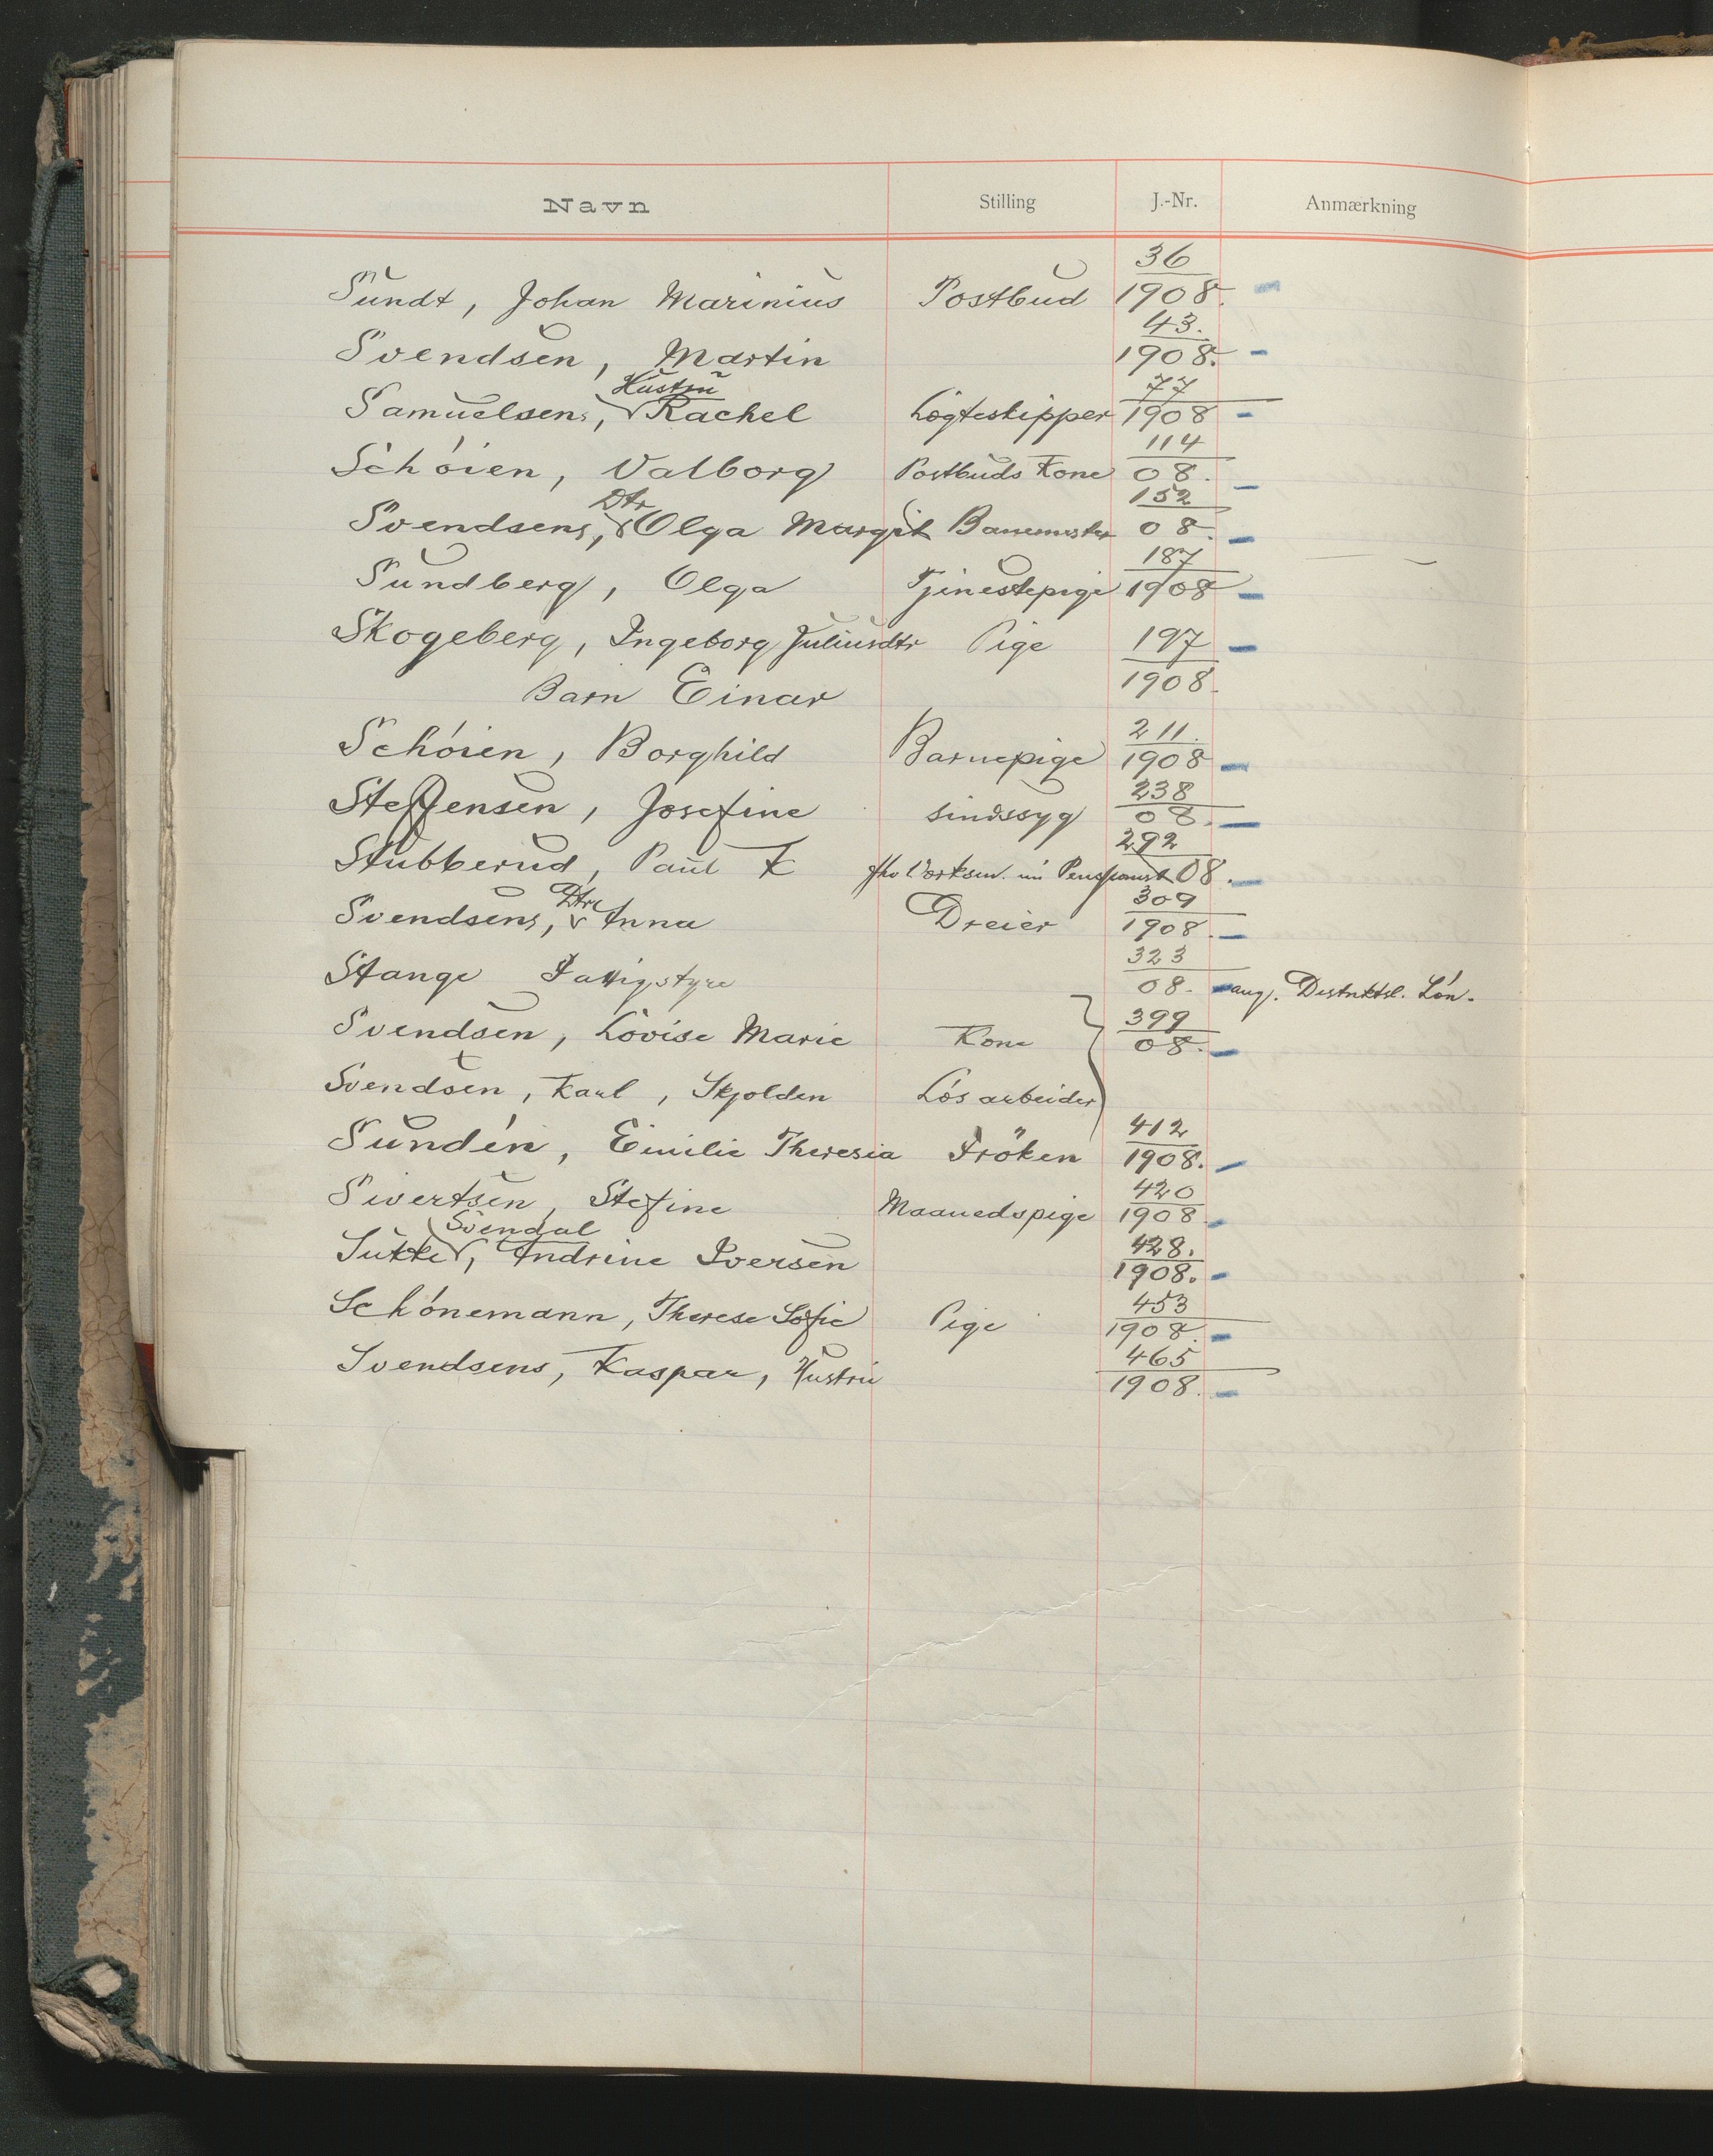 Navn Stilling J.-Nr. Anmærkning
Sundt, Johan Marinius Postbud 36/1908.
Svendsen, Martin 43./1908.
Samuelsens, Hustru Rachel Lægteskipper 77/1908
Schóien, Valborg Postbuds Kone 114/08.
Svendsens, Dtr Olga Margit Banemester 152/08.
Sundberg, Olga Tjinestepige 187/1908
Skogeberg, Ingeborg Juliusdtr Pige 197/1908.
Barn Einar
Schóien, Borghild Barnepige 211./1908
Steffensen, Josefine sindssyg 238/08.
Stubberud, Paul K 292/08.
Svendsens, Dtr Anna Dreier 309/1908.
Stange Fattigstyre 323/08. ang. Distriktsl. Lón.
Svendsen, Lovise Marie Kone 399/08.
Svendsen, Karl, Skjolden Lósarbeider
Sundén, Emilie Theresia Fröken 412/1908.
Sivertsen, Stefine Maanedspige 420/1908
Sukke, Svendal Andrine Iversen 428./1908.
Schónemann, Therese Sofie Pige 453/1908.
Svendsens, Kaspar, Hustru 465/1908.